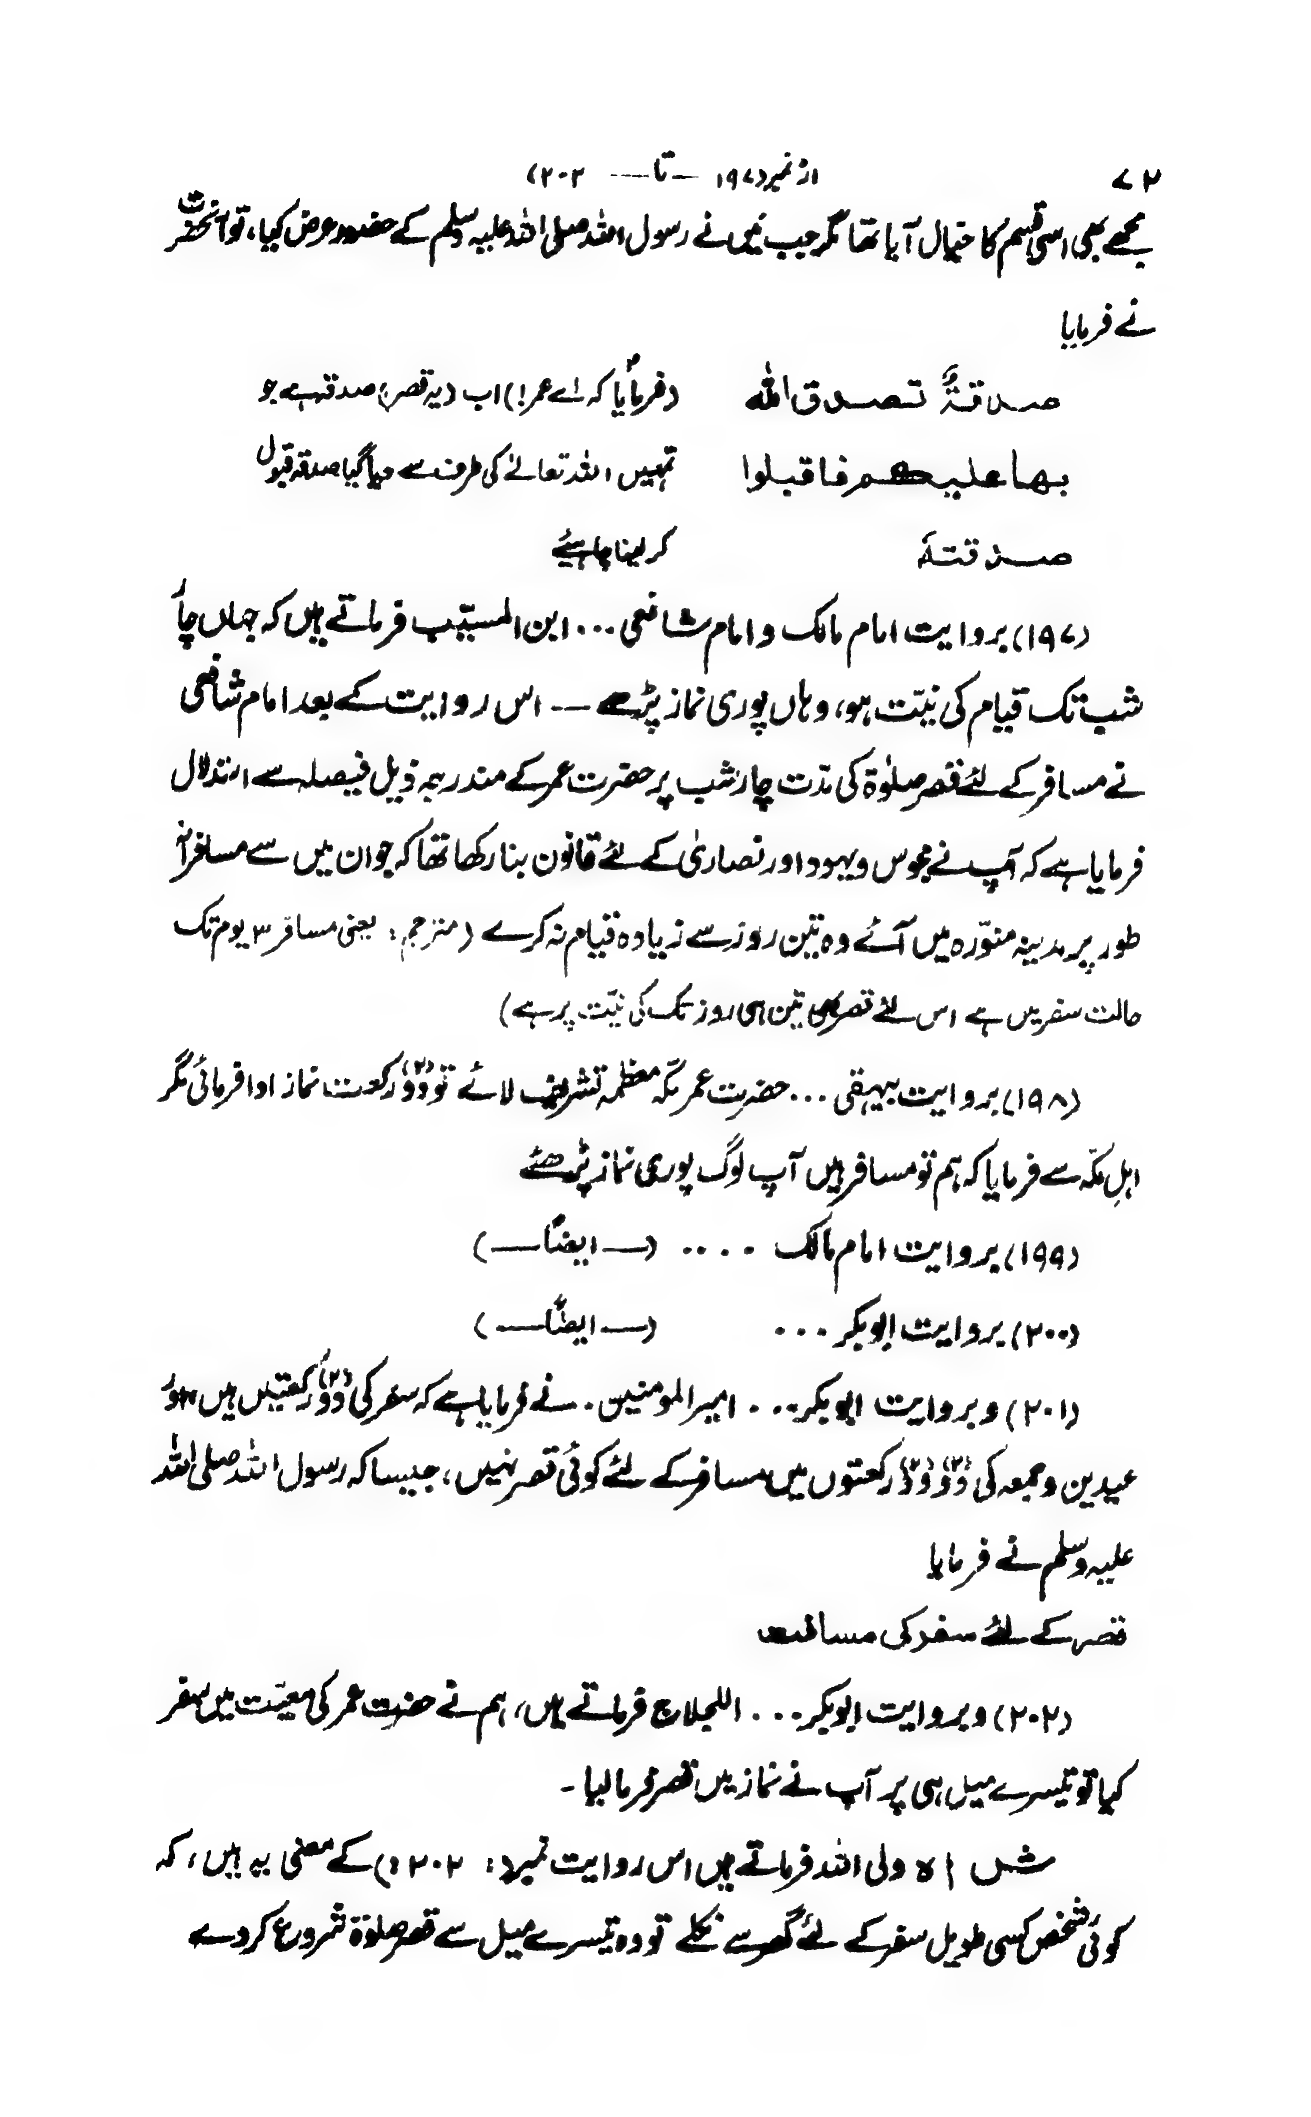 ۷۲
از نمبر (۱۹۷ — تا — ۲۰۲)
مجھے بھی اسی قسم کا خیال آیا تھا مگر جب میں نے رسول اللہ صلی اللہ علیہ وسلم کے حضور عرض کیا، تو آنحضرت
نے فرمایا
صدقةٌ تصدق الله (فرمایا کہ اے عمر!) اب (یہ قصر) صدقہ ہے جو
بها عليكم فاقبلوا تمہیں اللہ تعالےٰ کی طرف سے دیا گیا صدقہ قبول
صدقتهٗ کر لینا چاہیئے
(۱۹۷) بروایت امام مالک و امام شافعی ... ابن المسیّب فرماتے ہیں کہ جہاں چار
شب تک قیام کی نیّت ہو، وہاں پوری نماز پڑھے — اس روایت کے بعد امام شافعی
نے مسافر کے لئے قصر صلوٰۃ کی مدّت چار شب پر حضرت عمر کے مندرجہ ذیل فیصلہ سے استدلال
فرمایا ہے کہ آپ نے مجوس و یہود اور نصاریٰ کے لئے قانون بنا رکھا تھا کہ جو ان میں سے مسافرانہ
طور پر مدینہ منوّرہ میں آئے وہ تین روز سے زیادہ قیام نہ کرے (مترجم: یعنی مسافر ۳ یوم تک
حالت سفر میں ہے اس لئے قصر بھی تین ہی روز تک کی نیّت پر ہے)
(۱۹۸) بروایت بیہقی ... حضرت عمر مکّہ معظمہ تشریف لائے تو دو (۲) رکعت نماز ادا فرمائی مگر
اہلِ مکّہ سے فرمایا کہ ہم تو مسافر ہیں آپ لوگ پوری نماز پڑھئے
(۱۹۹) بروایت امام مالک .... (— ایضاً —)
(۲۰۰) بروایت ابوبکر ... (— ایضاً —)
(۲۰۱) و بروایت ابوبکر ... امیرالمومنین . نے فرمایا ہے کہ سفر کی دو (۲) رکعتیں ہیں اور
عیدین و جمعہ کی دو (۲) دو (۲) رکعتوں میں مسافر کے لئے کوئی قصر نہیں، جیسا کہ رسول اللہ صلی اللہ
علیہ وسلم نے فرمایا
قصر کے لئے سفر کی مسافت
(۲۰۲) و بروایت ابوبکر ... اللجلاج فرماتے ہیں، ہم نے حضرت عمر کی معیّت میں سفر
کیا تو تیسرے میل ہی پر آپ نے نماز میں قصر فرما لیا ۔
شاہ ولی اللہ فرماتے ہیں اس روایت نمبر (: ۲۰۲ :) کے معنی یہ ہیں، کہ
کوئی شخص کسی طویل سفر کے لئے گھر سے نکلے تو وہ تیسرے میل سے قصر صلوٰۃ شروع کر دے